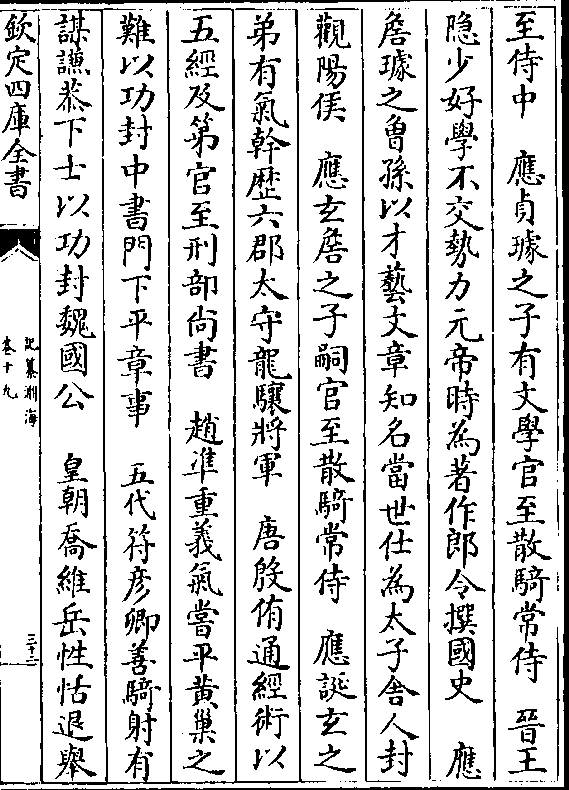 至侍中　應貞璩之子有文學官至散騎常侍　晉王
隐少好學不交勢力元帝時為著作郎令撰國史　應
詹璩之曾孫以才藝文章知名當世仕為太子舍人封
觀陽侯　應玄詹之子嗣官至散騎常侍　應誕玄之
弟有氣幹歴六郡太守龍驤將軍　唐殷侑通經術以
五經及第官至刑部尚書　趙凖重義氣嘗平黄巢之
難以功封中書門下平章事　五代符彦卿善騎射有
謀謙恭下士以功封魏國公　皇朝喬維岳性恬退舉
欽定四庫全書
記纂淵海
卷十九
三十二